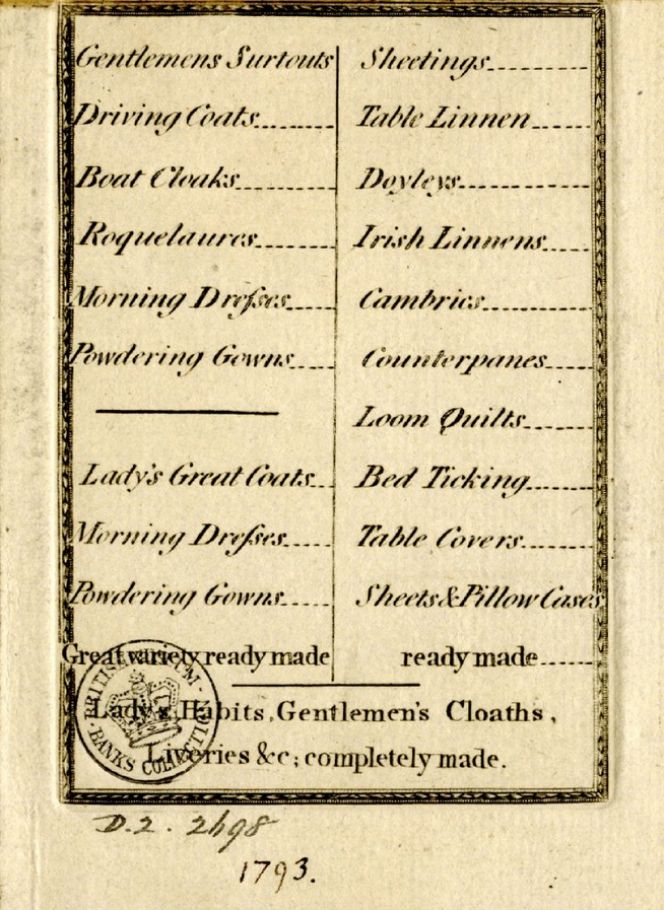 Gentlemens Surtouts
Driving Coats
Boat Cloaks
Roquelaures
Morning Dreſses
Powdering Gowns
Lady's Great Coats
Morning Dreſses
Powdering Gowns
Great variety ready made
Sheetings
Table Linnen
Doyleys
Irish Linnens
Cambrics
Counterpanes
Loom Quilts
Bed Ticking
Table Covers
Sheets & Pillow Cases
ready made
Lady's Habits, Gentlemen's Cloaths,
Liveries &c; completely made.
BRITISH MUSEUM
BANKS COLLECTION
D.2. 2498
1793.